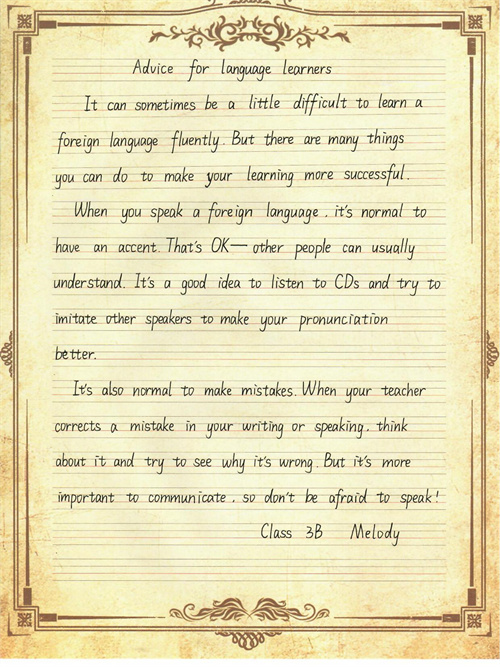 Advice for language learners
It can sometimes be a little difficult to learn a
foreign language fluently. But there are many things
you can do to make your learning more successful.
When you speak a foreign language, it's normal to
have an accent. That's OK—other people can usually
understand. It's a good idea to listen to CDs and try to
imitate other speakers to make your pronunciation
better.
It's also normal to make mistakes. When your teacher
corrects a mistake in your writing or speaking, think
about it and try to see why it's wrong. But it's more
important to communicate, so don't be afraid to speak!
Class 3B Melody